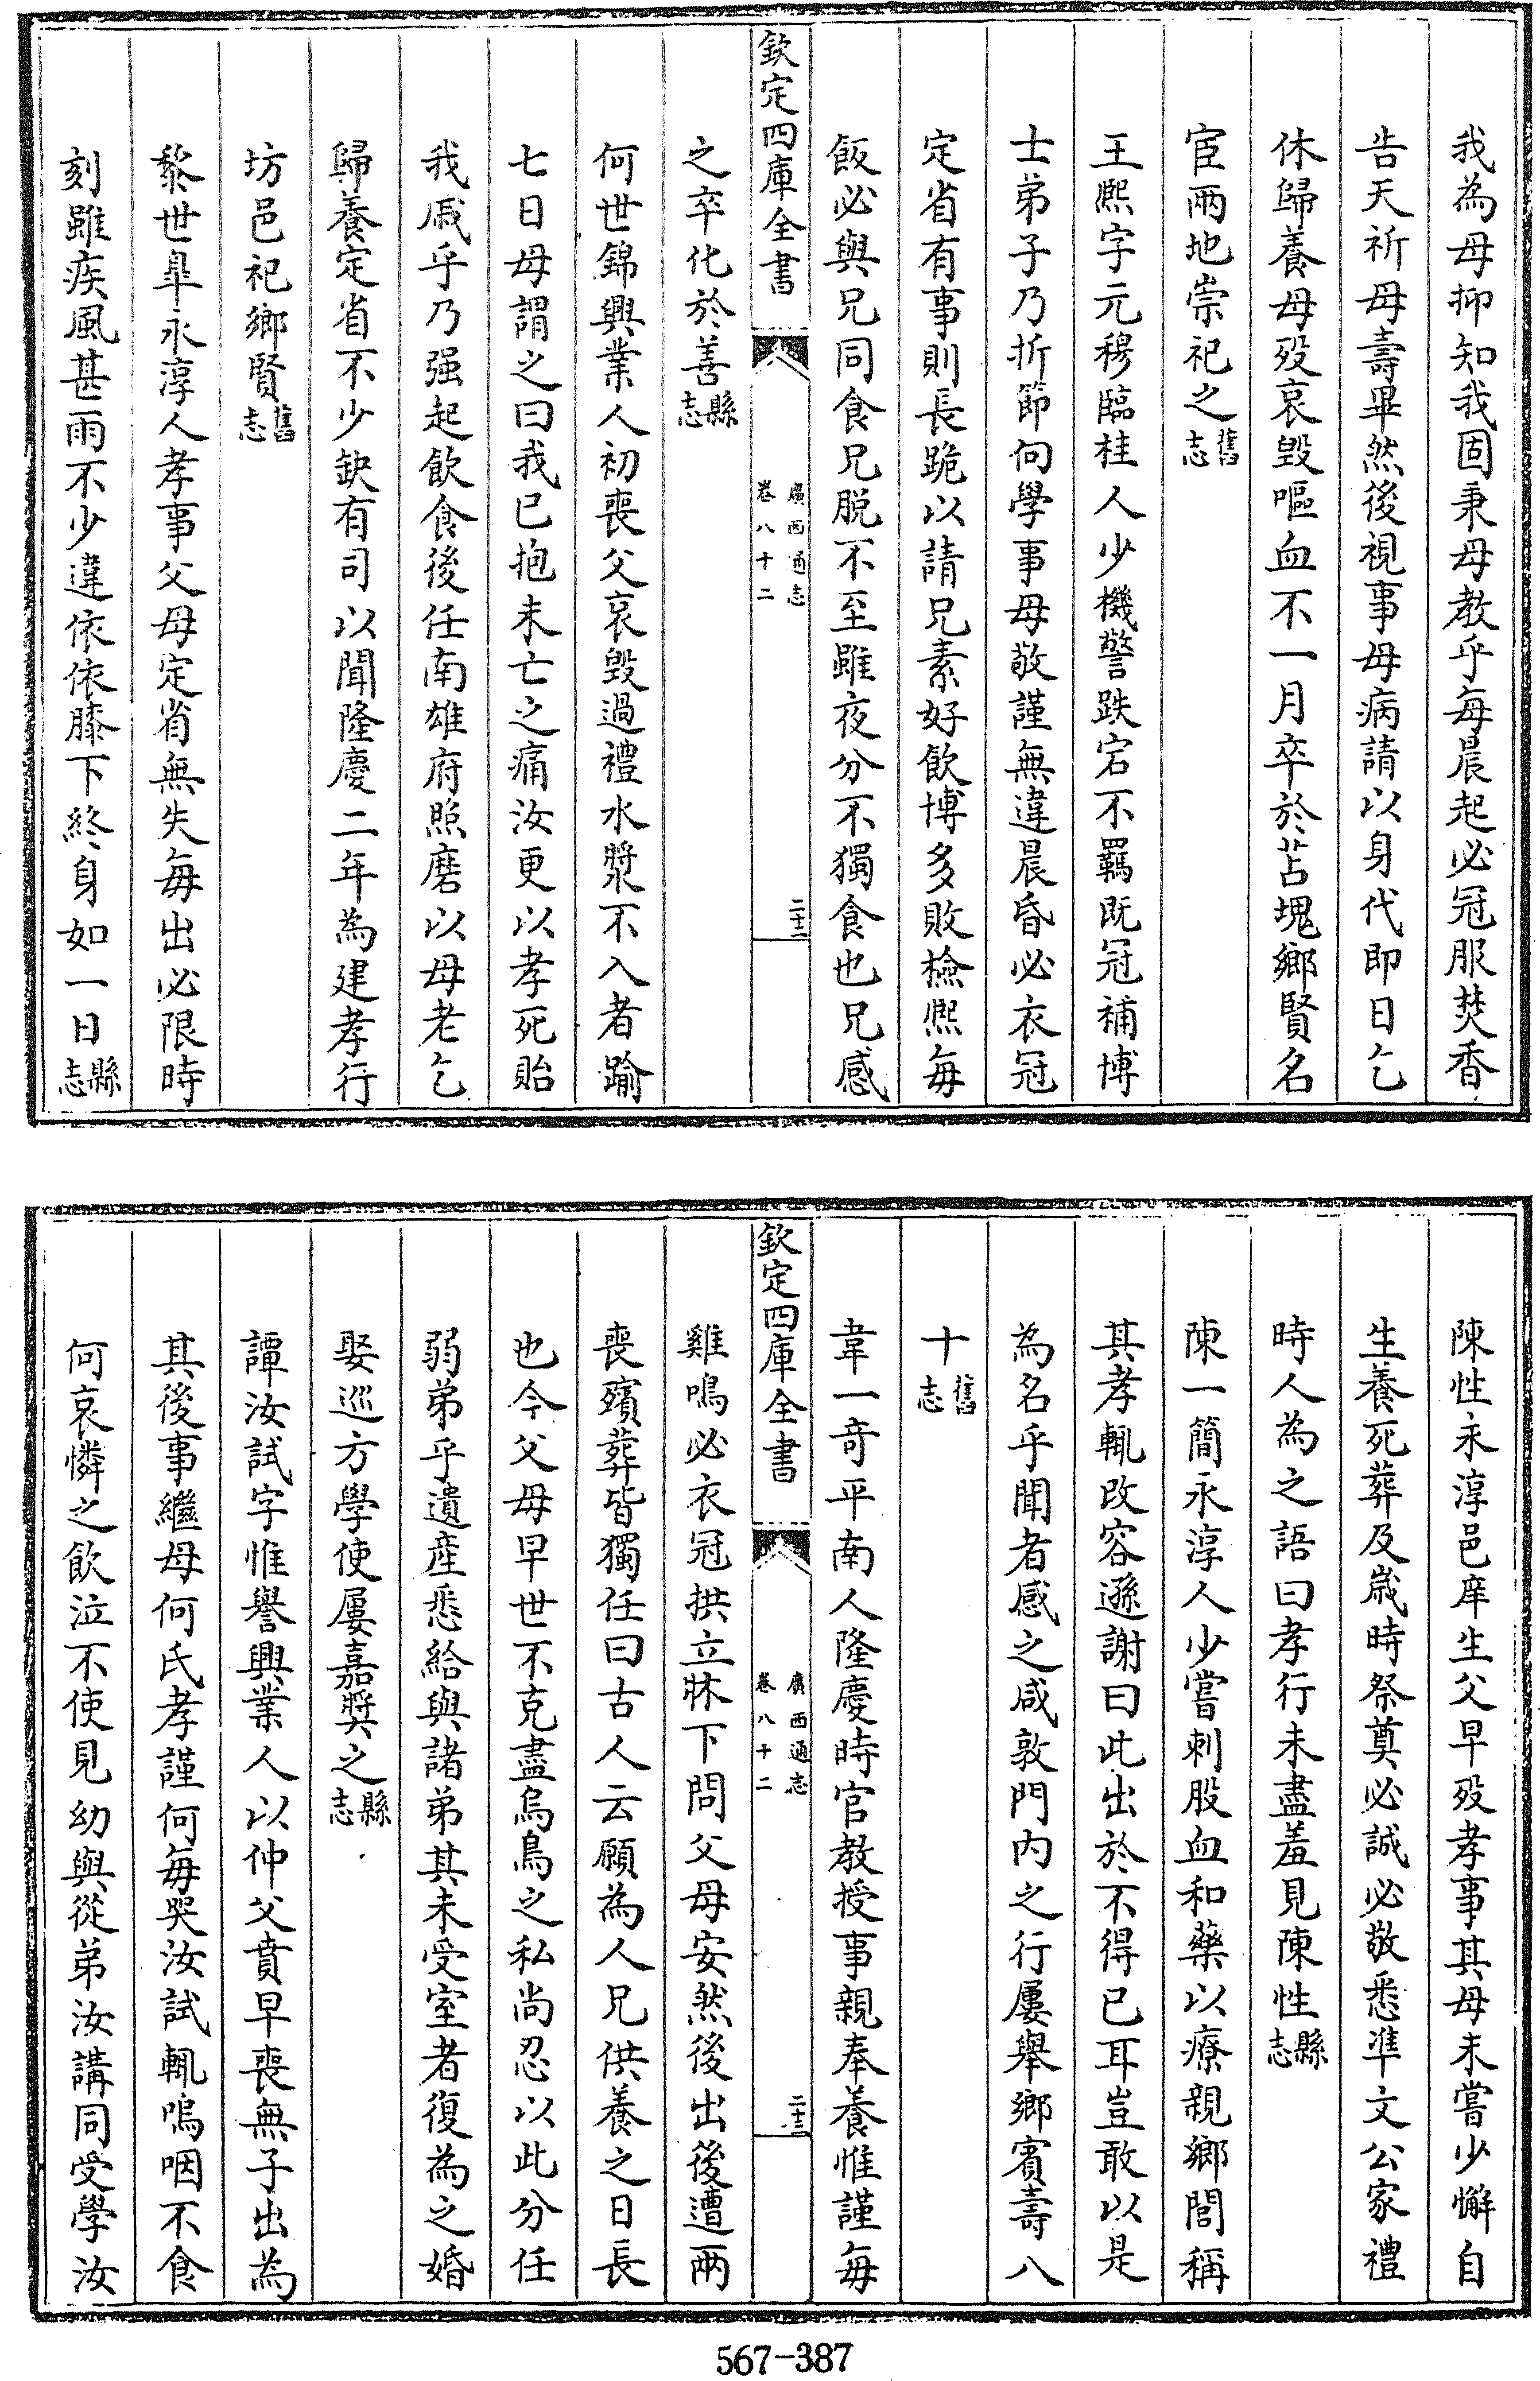 我為母抑知我固秉母教乎每晨起必冠服焚香
告天祈母壽畢然後視事母病請以身代即日乞
休歸養母歿哀毀嘔血不一月卒於苫塊鄉賢名
宦兩地崇祀之舊志
王熈字元穆臨桂人少機警跌宕不羈既冠補博
士弟子乃折節向學事母敬謹無違晨昏必衣冠
定省有事則長跪以請兄素好飲博多敗檢熈每
飯必與兄同食兄脱不至雖夜分不獨食也兄感
欽定四庫全書
廣西通志
卷八十二
二十二
之卒化於善縣志
何世錦興業人初喪父哀毀過禮水漿不入者踰
七日母謂之曰我已抱未亡之痛汝更以孝死貽
我戚乎乃强起飲食後任南雄府照磨以母老乞
歸養定省不少缺有司以聞隆慶二年為建孝行
坊邑祀鄉賢舊志
黎世臯永淳人孝事父母定省無失每出必限時
刻雖疾風甚雨不少違依依膝下終身如一日縣志
陳性永淳邑庠生父早歿孝事其母未嘗少懈自
生養死葬及歲時祭奠必誠必敬悉準文公家禮
時人為之語曰孝行未盡羞見陳性縣志
陳一簡永淳人少嘗刺股血和藥以療親鄉閭稱
其孝輒改容遜謝曰此出於不得已耳豈敢以是
為名乎聞者感之咸敦門内之行屢舉鄉賓壽八
十舊志
韋一奇平南人隆慶時官教授事親奉養惟謹每
欽定四庫全書
廣西通志
卷八十二
二十三
雞鳴必衣冠拱立牀下問父母安然後出後遭兩
喪殯葬皆獨任曰古人云願為人兄供養之日長
也今父母早世不克盡烏鳥之私尚忍以此分任
弱弟乎遺産悉給與諸弟其未受室者復為之婚
娶巡方學使屢嘉奬之縣志
譚汝試字惟譽興業人以仲父賁早喪無子出為
其後事繼母何氏孝謹何每哭汝試輒嗚咽不食
何哀憐之飲泣不使見幼與從弟汝講同受學汝
567-387